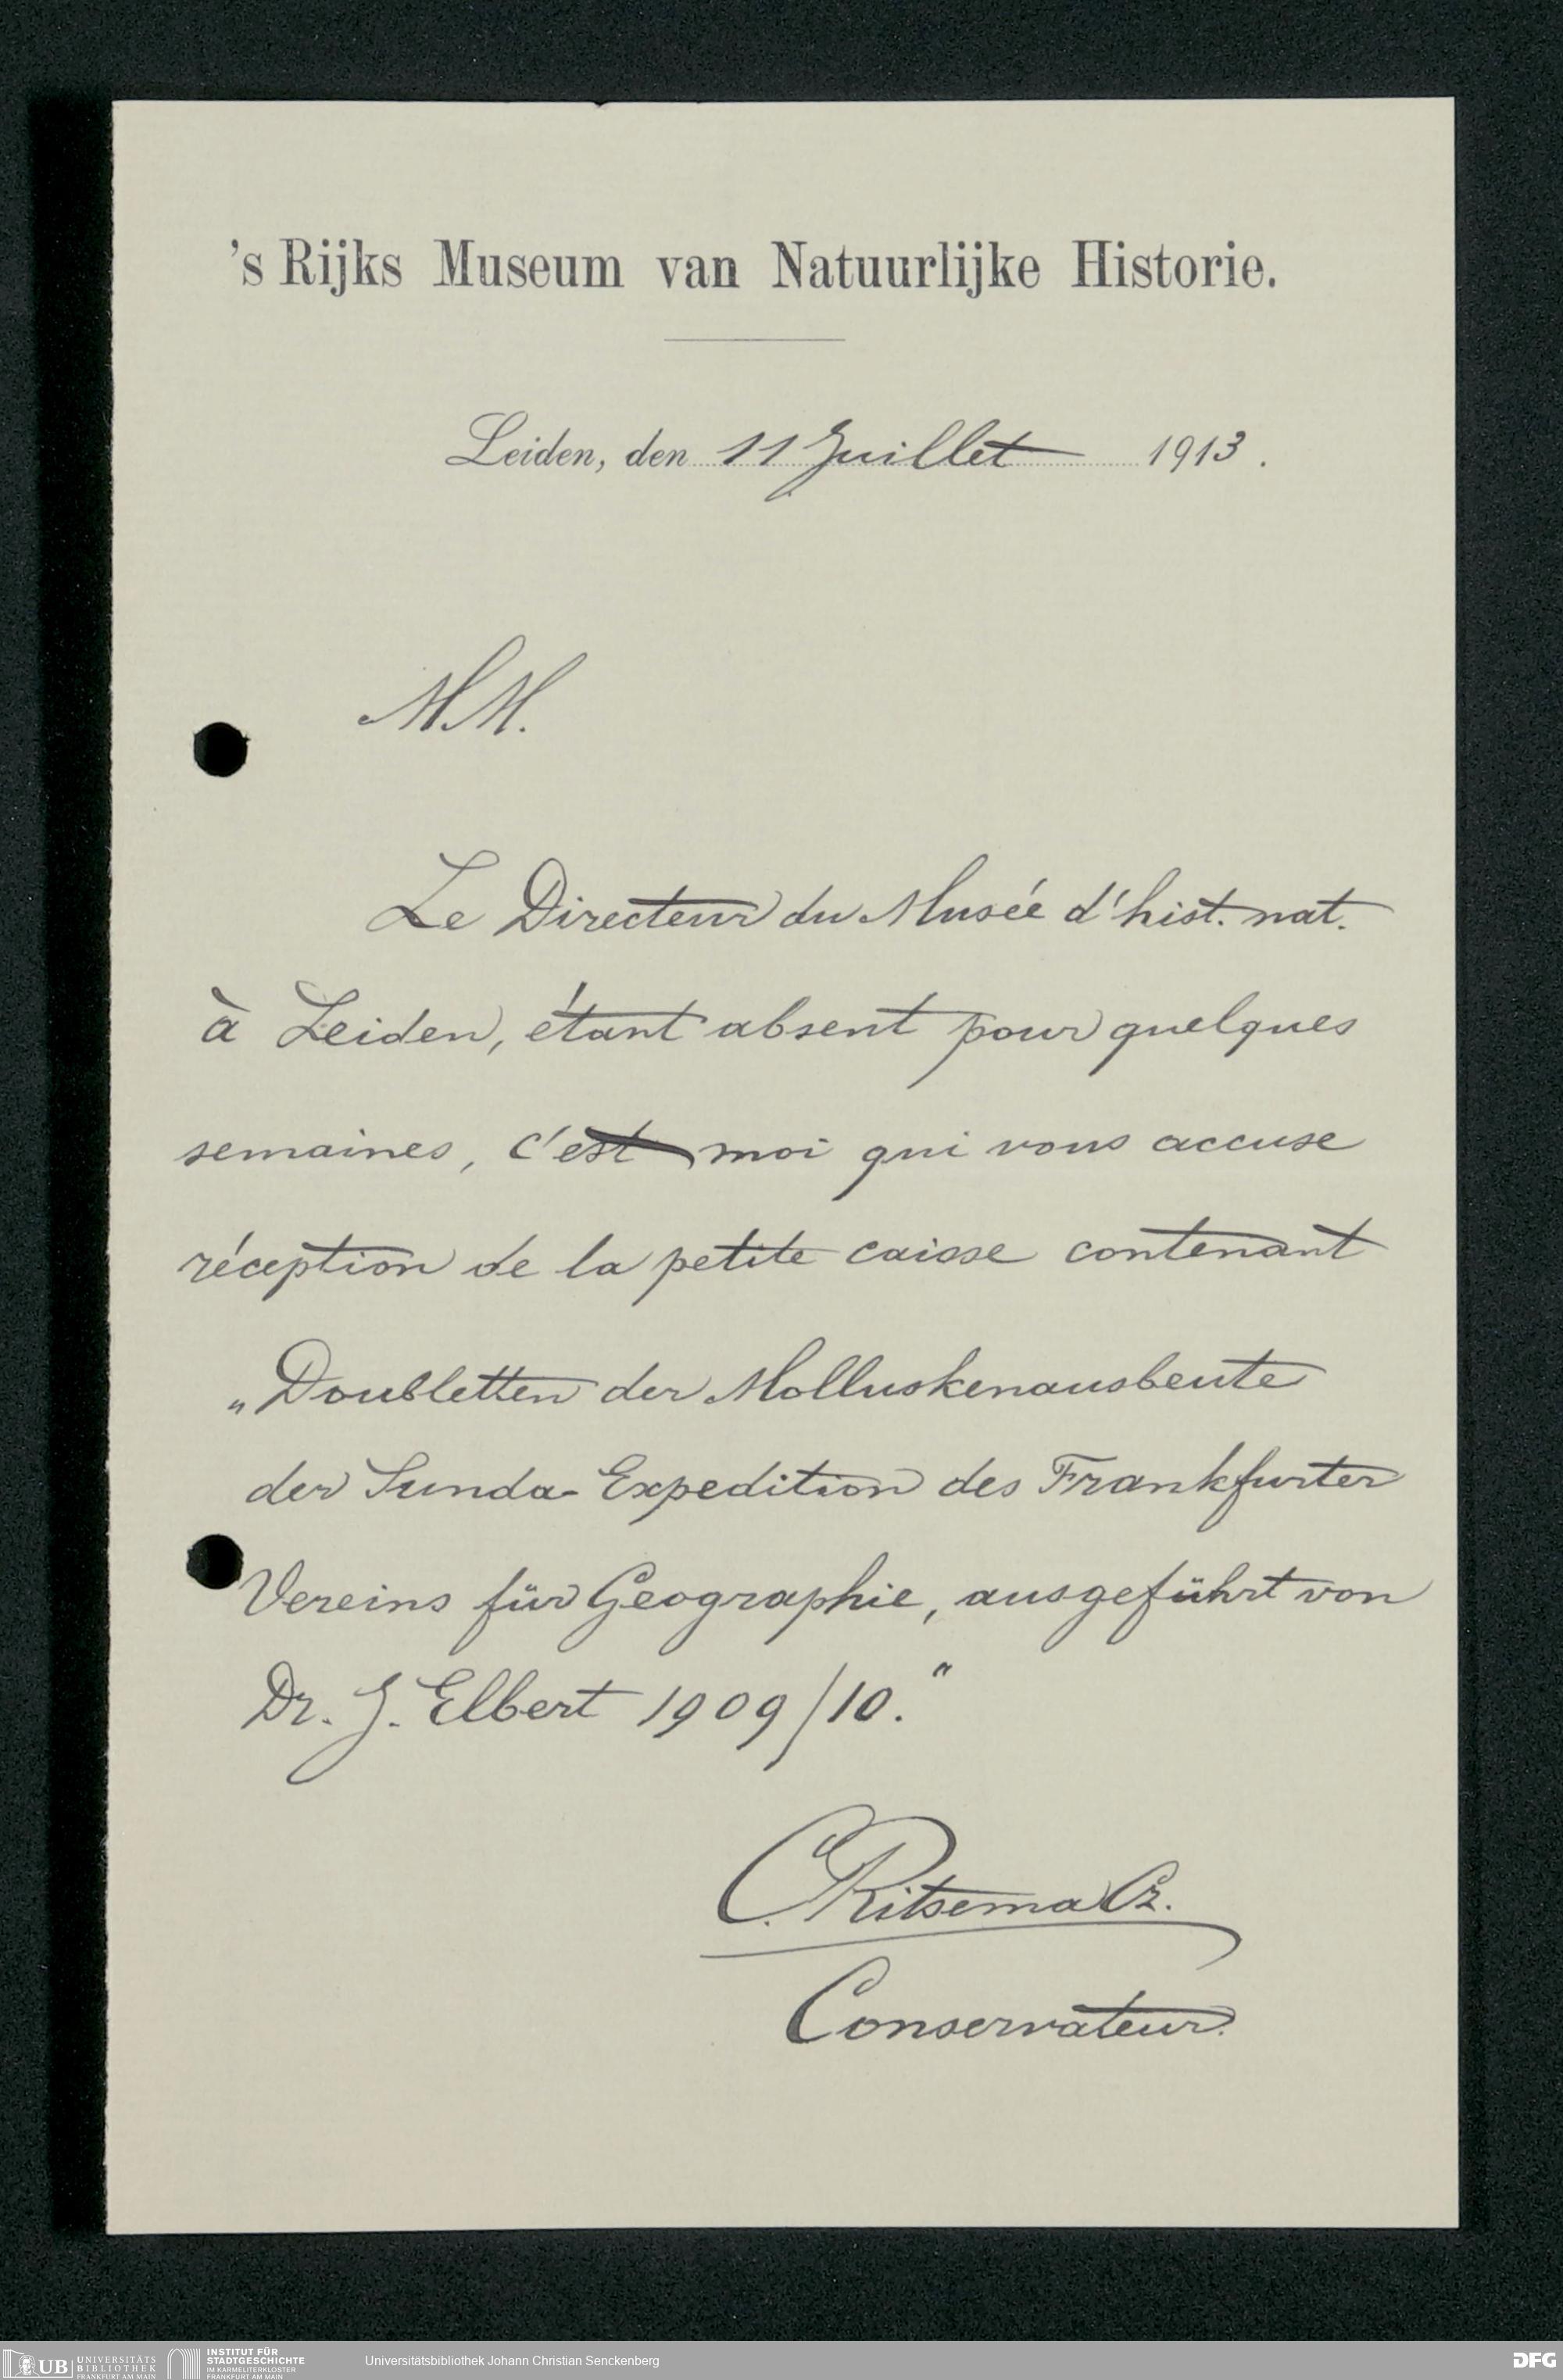 's Rijks Museum van Natuurlijke Historie.
Leiden, den 11 Juillet 1913.
MM.
Le Directeur du Musée d'hist. nat.
à Leiden, étant absent pour quelques
semaines, c'est moi qui vous accuse
réception de la petite caisse contenant
„Doubletten der Molluskenausbeute
der Sunda-Expedition des Frankfurter
Vereins für Geographie, ausgeführt von
Dr. J. Elbert 1909/10."
C. Ritsema Cz.
Conservateur.
UB UNIVERSITÄTS BIBLIOTHEK FRANKFURT AM MAIN
INSTITUT FÜR STADTGESCHICHTE IM KARMELITERKLOSTER FRANKFURT AM MAIN
Universitätsbibliothek Johann Christian Senckenberg
DFG